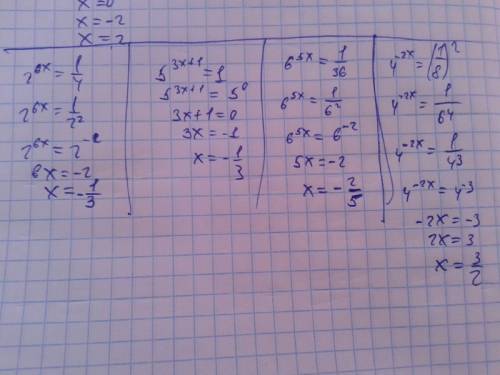 x=0
x=-2
x=2
2^{6x}=\frac{1}{4}
2^{6x}=\frac{1}{2^2}
2^{6x}=2^{-2}
6x=-2
x=-\frac{1}{3}
5^{3x+1}=1
5^{3x+1}=5^0
3x+1=0
3x=-1
x=-\frac{1}{3}
6^{5x}=\frac{1}{36}
6^{5x}=\frac{1}{6^2}
6^{5x}=6^{-2}
5x=-2
x=-\frac{2}{5}
4^{-2x}=(\frac{1}{8})^2
4^{-2x}=\frac{1}{64}
4^{-2x}=\frac{1}{4^3}
4^{-2x}=4^{-3}
-2x=-3
2x=3
x=\frac{3}{2}